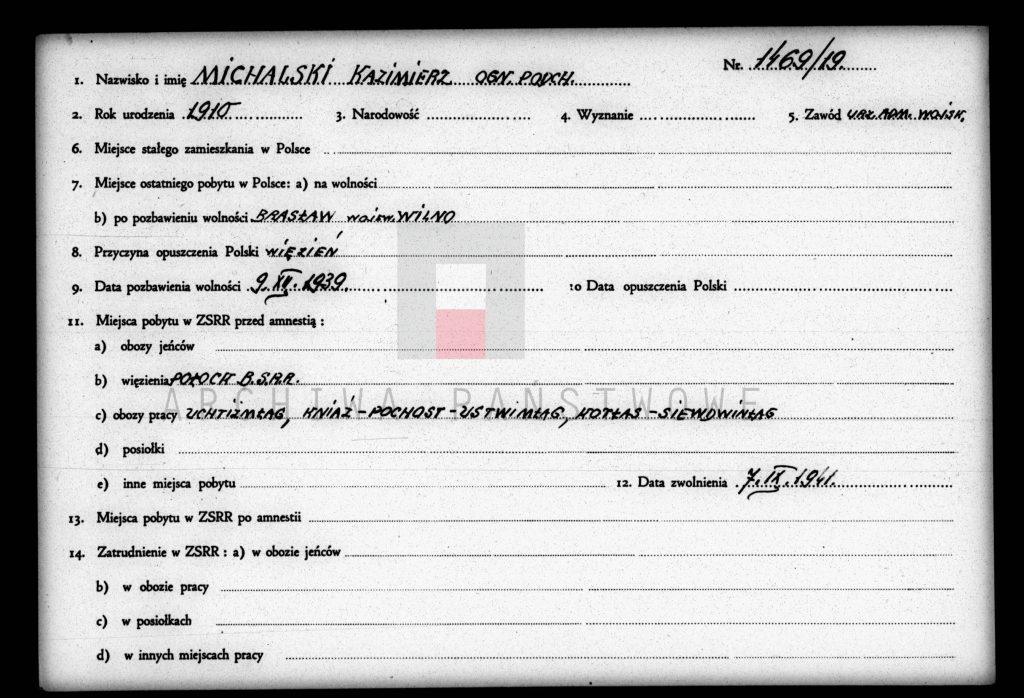 Nr. 1469/19
1. Nazwisko i imię MICHALSKI KAZIMIERZ OGN. PODCH.
2. Rok urodzenia 1910 3. Narodowość 4. Wyznanie 5. Zawód URZ. ADM. WOJSK.
6. Miejsce stałego zamieszkania w Polsce
7. Miejsce ostatniego pobytu w Polsce: a) na wolności
b) po pozbawieniu wolności BRASŁAW WOJEW. WILNO
8. Przyczyna opuszczenia Polski WIĘZIEŃ
9. Data pozbawienia wolności 9. XII. 1939. 10 Data opuszczenia Polski
11. Miejsca pobytu w ZSRR przed amnestią :
a) obozy jeńców
b) więzienia POŁOCK B.S.R.R.
ARCHIWA PAŃSTWOWE
c) obozy pracy UCHTIŻMŁAG, KNIAŹ-POCHOST-USTWIMŁAG, KOTŁAS-SIEWDWINŁAG
d) posiołki
e) inne miejsca pobytu 12. Data zwolnienia 7. IX. 1941.
13. Miejsca pobytu w ZSRR po amnestii
14. Zatrudnienie w ZSRR : a) w obozie jeńców
b) w obozie pracy
c) w posiołkach
d) w innych miejscach pracy